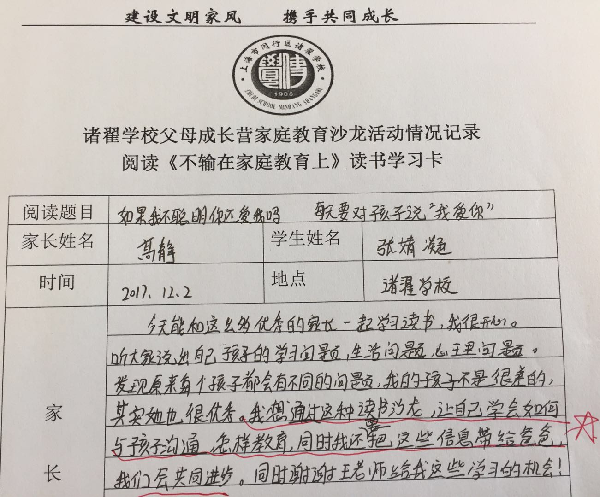 建设文明家风 携手共同成长
上海市闵行区诸翟学校
1906
诸翟学校父母成长营家庭教育沙龙活动情况记录
阅读《不输在家庭教育上》读书学习卡
阅读题目 如果我不聪明你还爱我吗 每天要对孩子说“我爱你”
家长姓名 葛静 学生姓名 张婧
时间 2017.12.2 地点 诸翟学校
今天能和这么多优秀的家长一起学习读书,我很开心。
听大家说出自己孩子的学习问题,生活问题,心里问题。
发现原来每个孩子都会有不同的问题,我的孩子不是很差的,
其实她也很优秀。我想通过这种读书沙龙,让自己学会如何
与孩子沟通,怎样教育,同时我还要把这些信息带给爸爸,
我们会共同进步。同时谢谢王老师给我这些学习的机会!
家
长